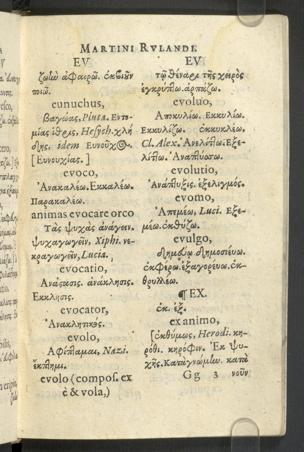 MARTINI RVLANDI.
EV
ζωὼ ἀφαιρῶ.
ποιῶ.
eunuchus,
Βαγώας, Pluta. Εὐνο-
μίας Hesych.
idem Εὐνοῦχος.
[Εὐνουχίας.]
evoco,
Ἀνακαλέω. Ἐκκαλέω.
Παρακαλέω.
animas evocare orco
Τὰς ψυχὰς ἀνάγειν.
ψυχαγωγεῖν, Xiphi. νε-
κραγωγεῖν, Lucia.
evocatio,
Ἀνάκλησις.
Ἔκκλησις.
evocator,
Ἀνακλητικός.
evolo,
Ἀφίπταμαι, Nazi.
ἐκπέτημι.
evolo (compos. ex
è & vola,)
EV
τῷ θέναρι τῆς χειρὸς
ἐγκρύπτω. ἁρπάζω.
evoluo,
Ἀποκυλίω. Ἐκκυλίω.
Ἐκκυλίζω. ἐκκυκλέω,
Cl. Alex. Ἀνελίττω. Ἐξε-
λίττω. Ἀναπτύσσω.
evolutio,
Ἀνάπτυξις. ἐξελιγμός.
evomo,
Ἀπεμέω, Luci. Ἐξε-
μέω.
evulgo,
δημοσιεύω.
ἐκφέρω. ἐξαγορεύω. ἐκ-
θρυλλέω.
¶ EX.
ἐκ. ἐξ.
ex animo,
[ἐκθύμως, Herodi. κη-
ρόθι. κηρόφιν. Ἐκ ψυ-
χῆς. κατὰ
Gg 3 νοῦν